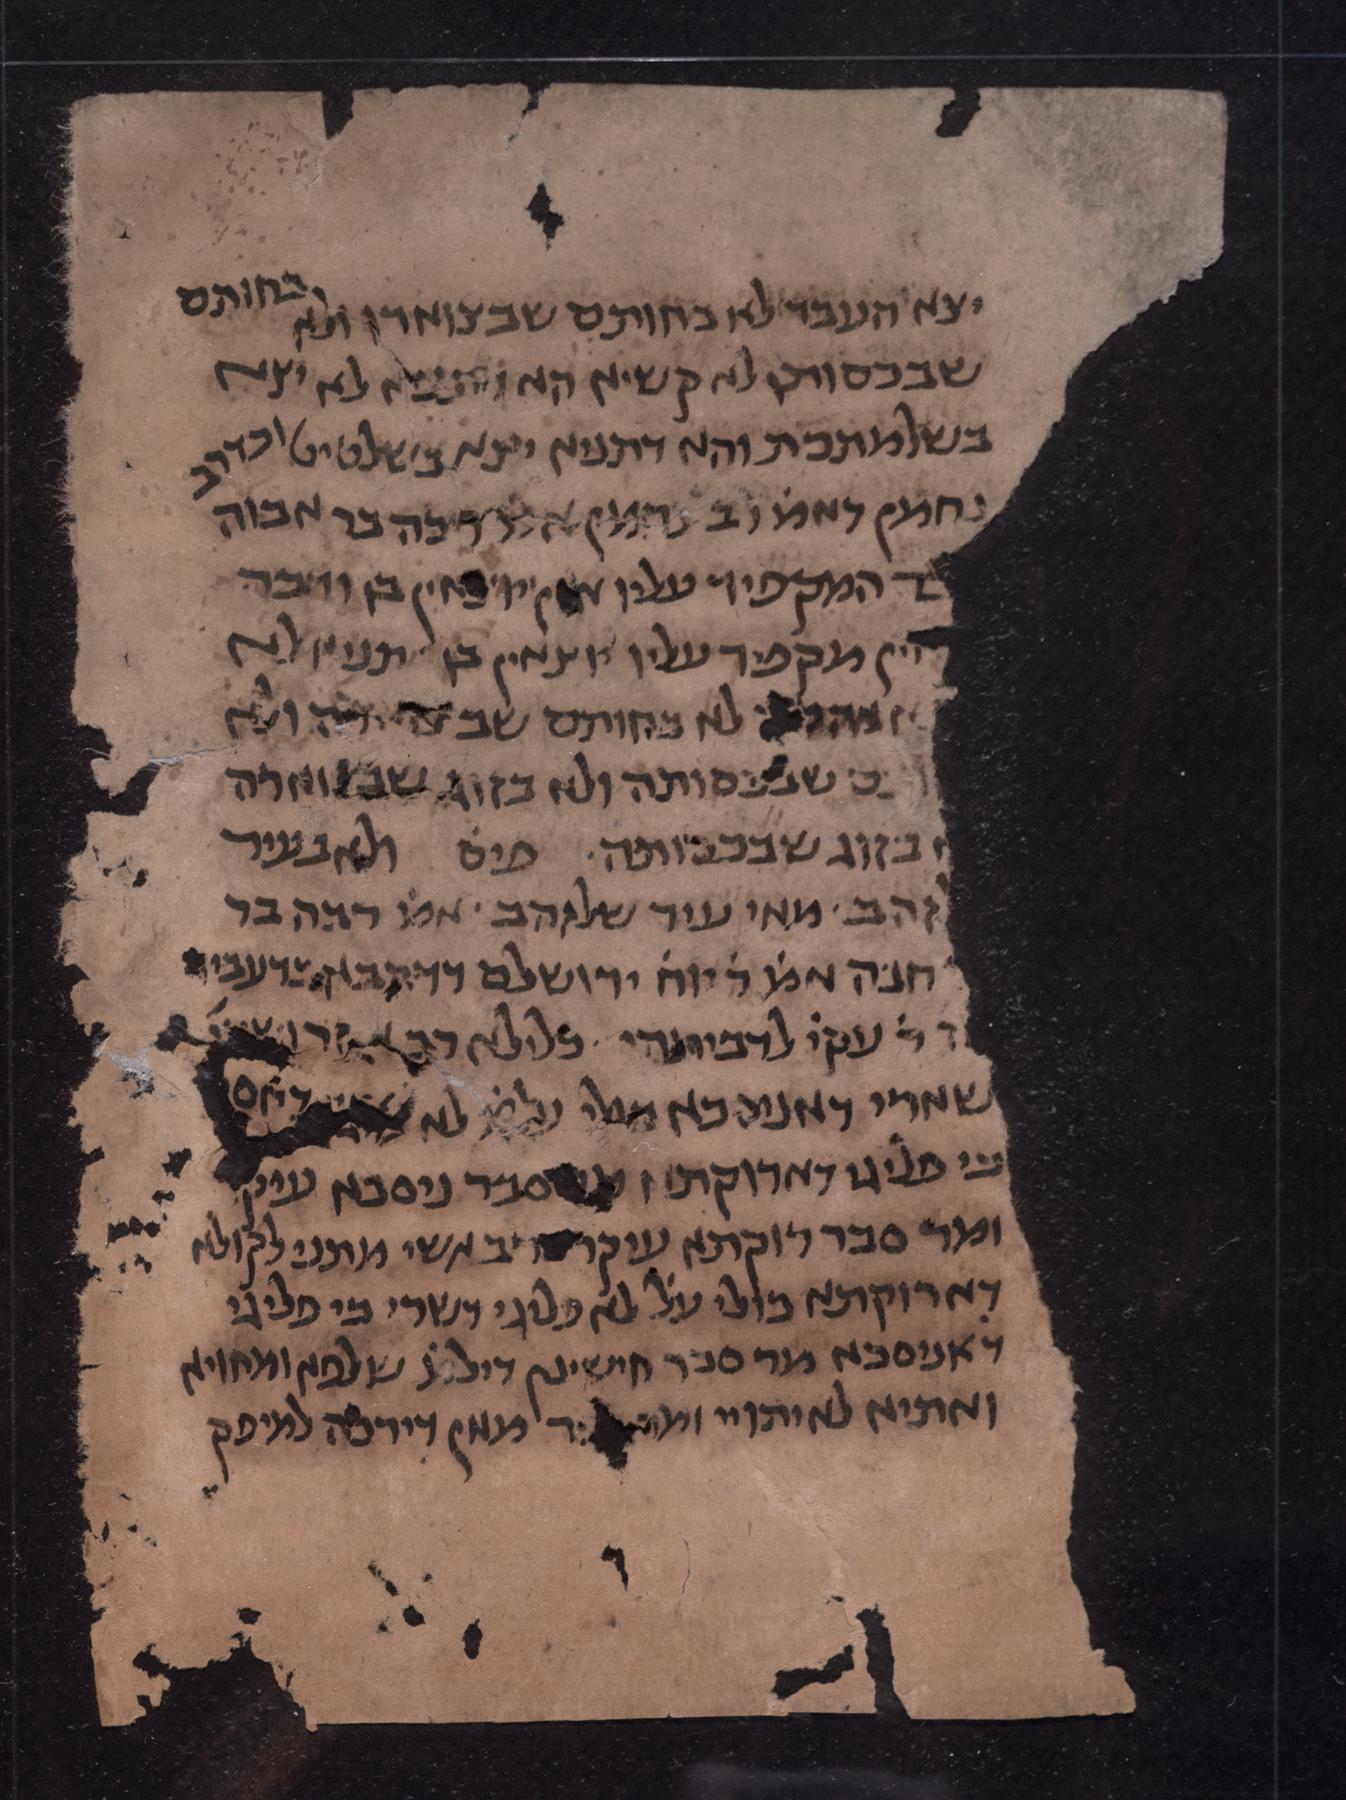 יצא העבד לא בחותם שבצוארו ולא בחותם
שבכסותו לא קשיא הא דתניא לא יצא
בשלמתכת והא דתניא יצא בשלטיט וכדרב
נחמן דאמ׳ רב נחמן אמ׳ רבה בר אבוה
המקפיד עליו אין יוצאין בו ודבר
מקפיד עליו יוצאין בו תניא לא
לא בחותם ולא
שבכסותה ולא בזוג שבצוארה
בזוג שבכסותה פיס׳ ולא בעיר
זהב מאי עיר שלזהב אמ׳ רבה בר
חנה אמ׳ ר׳ יוח׳ ירושלם דדהבא כדעביד
ר׳ עקי׳ לדביתהו כלילא רב
שארי דאניסכא כולי עלמ׳ לא דאסי׳
כי פליגי דארוקתא סבר ניסכא עיקר
ומר סבר רוקתא עיקר רב אשי מתני לקולא
דארוקתא כולי על׳ לא פליגי דשרי כי פליגי
דאניסכא מר סבר חישינן דילמ׳ שלפא ומחויא
ואתיא לאיתויי ומר מאן דירכה למיפק